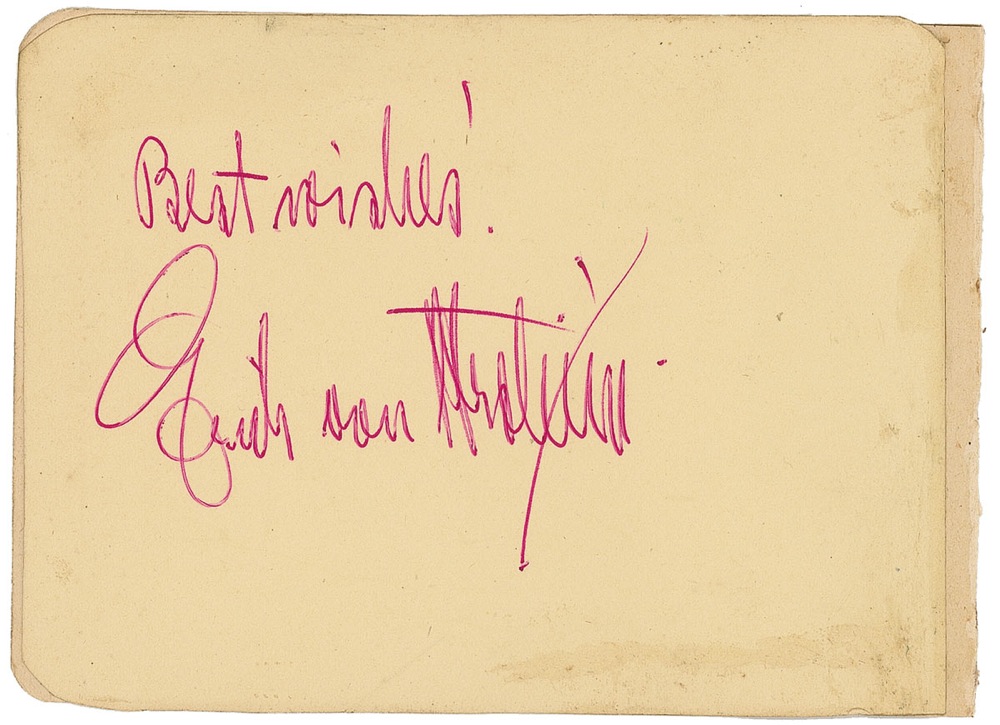 Best wishes!
Erich von Stroheim.